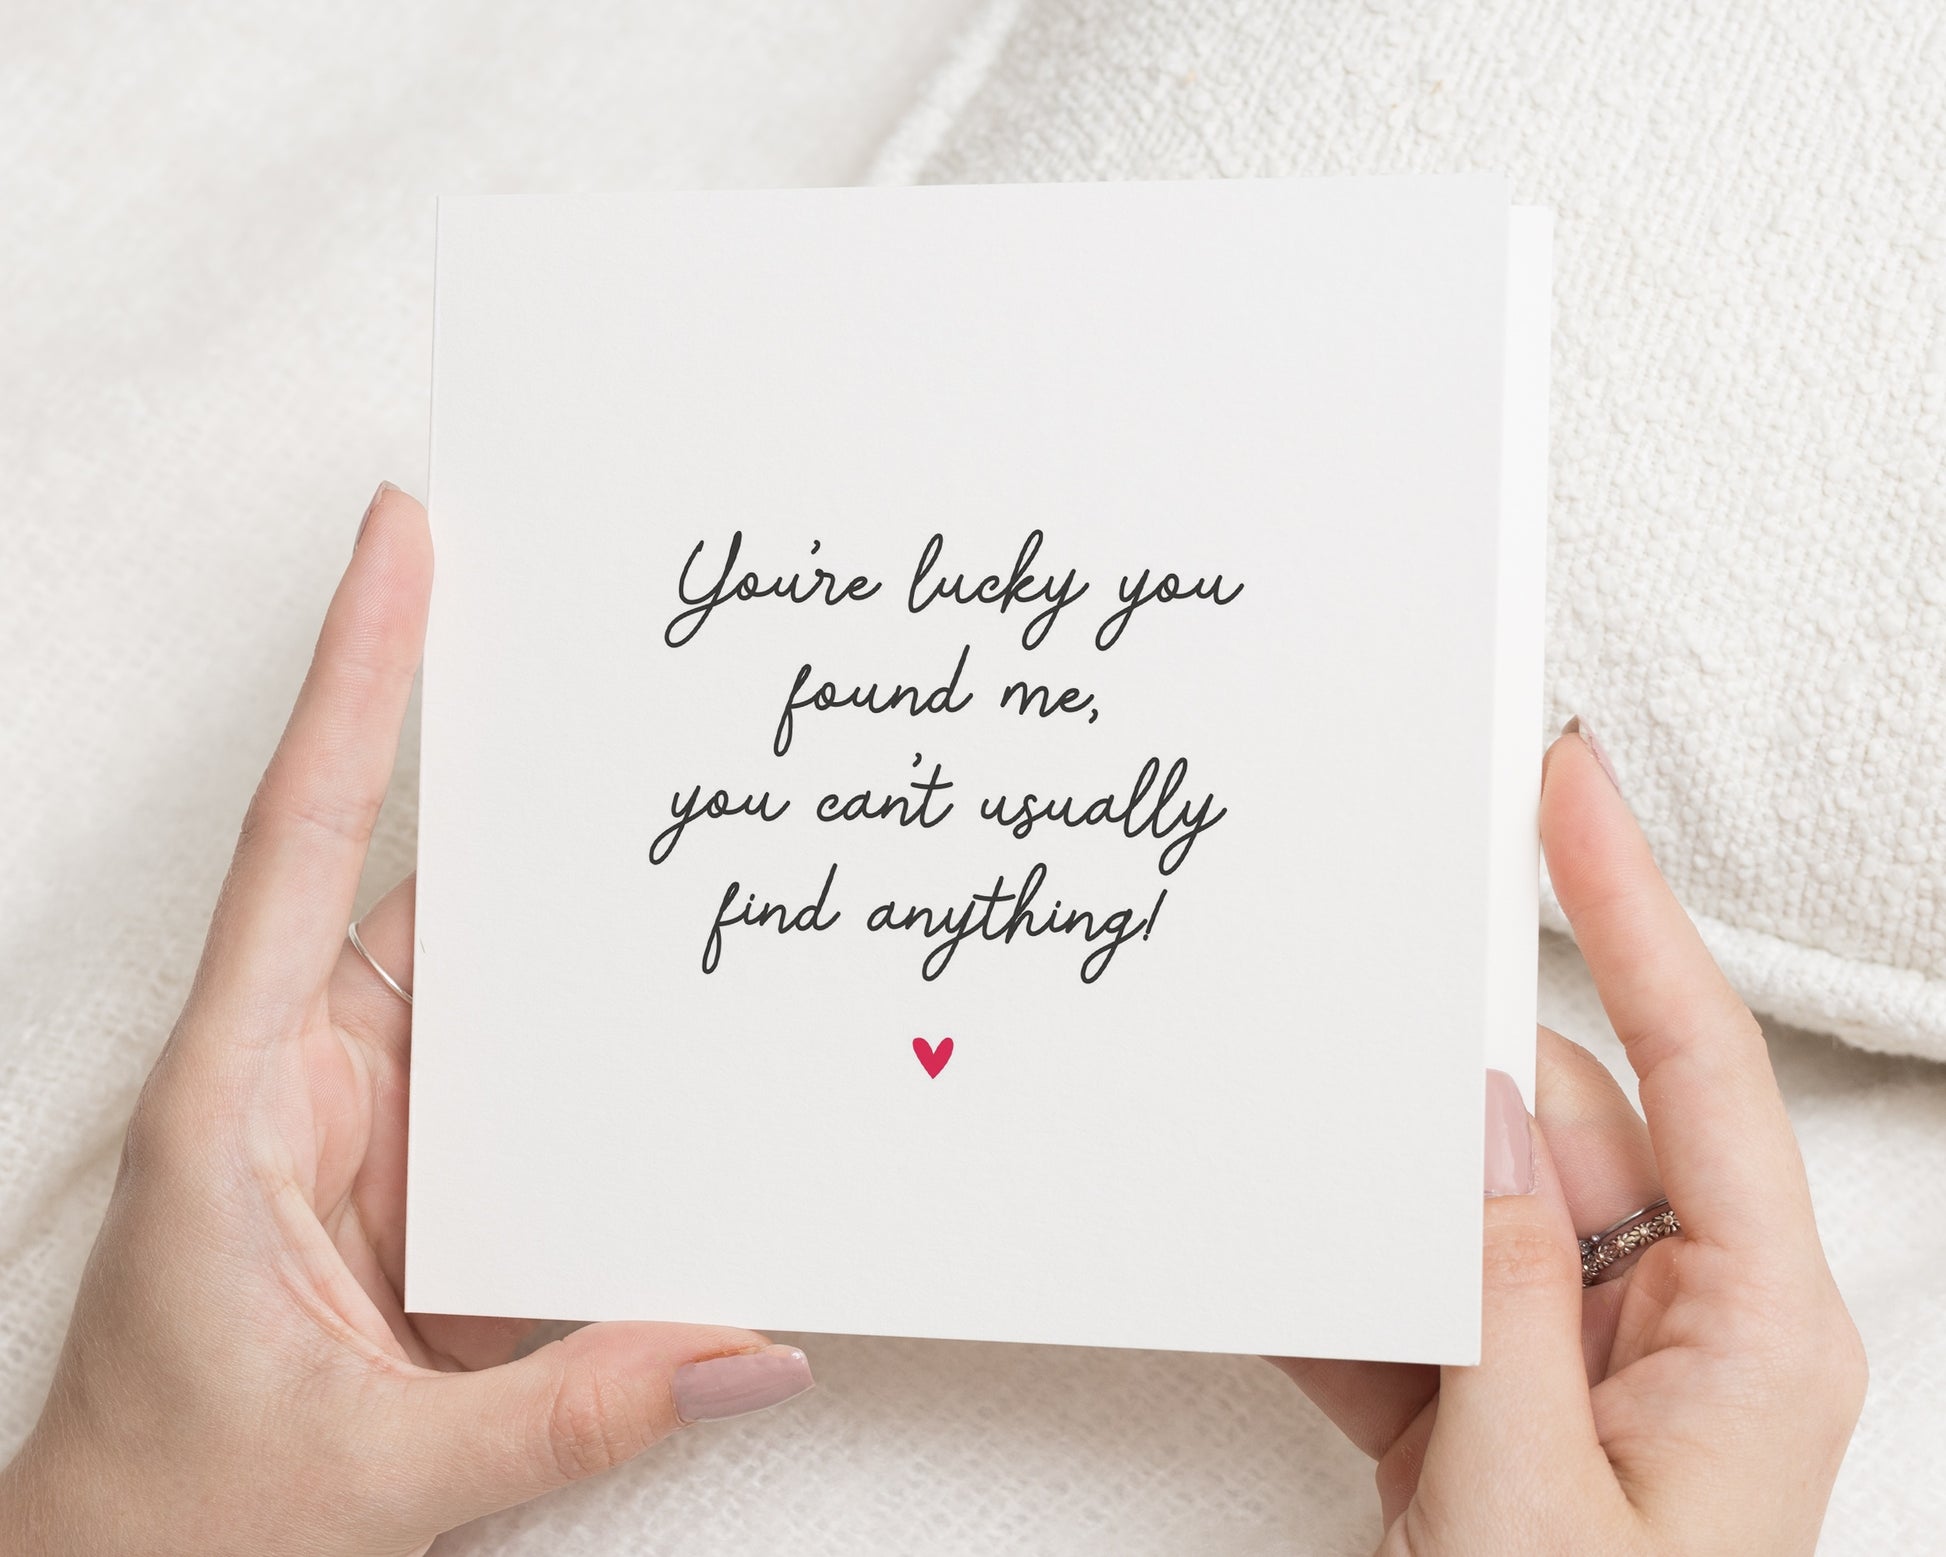 You're lucky you
found me,
you can't usually
find anything!